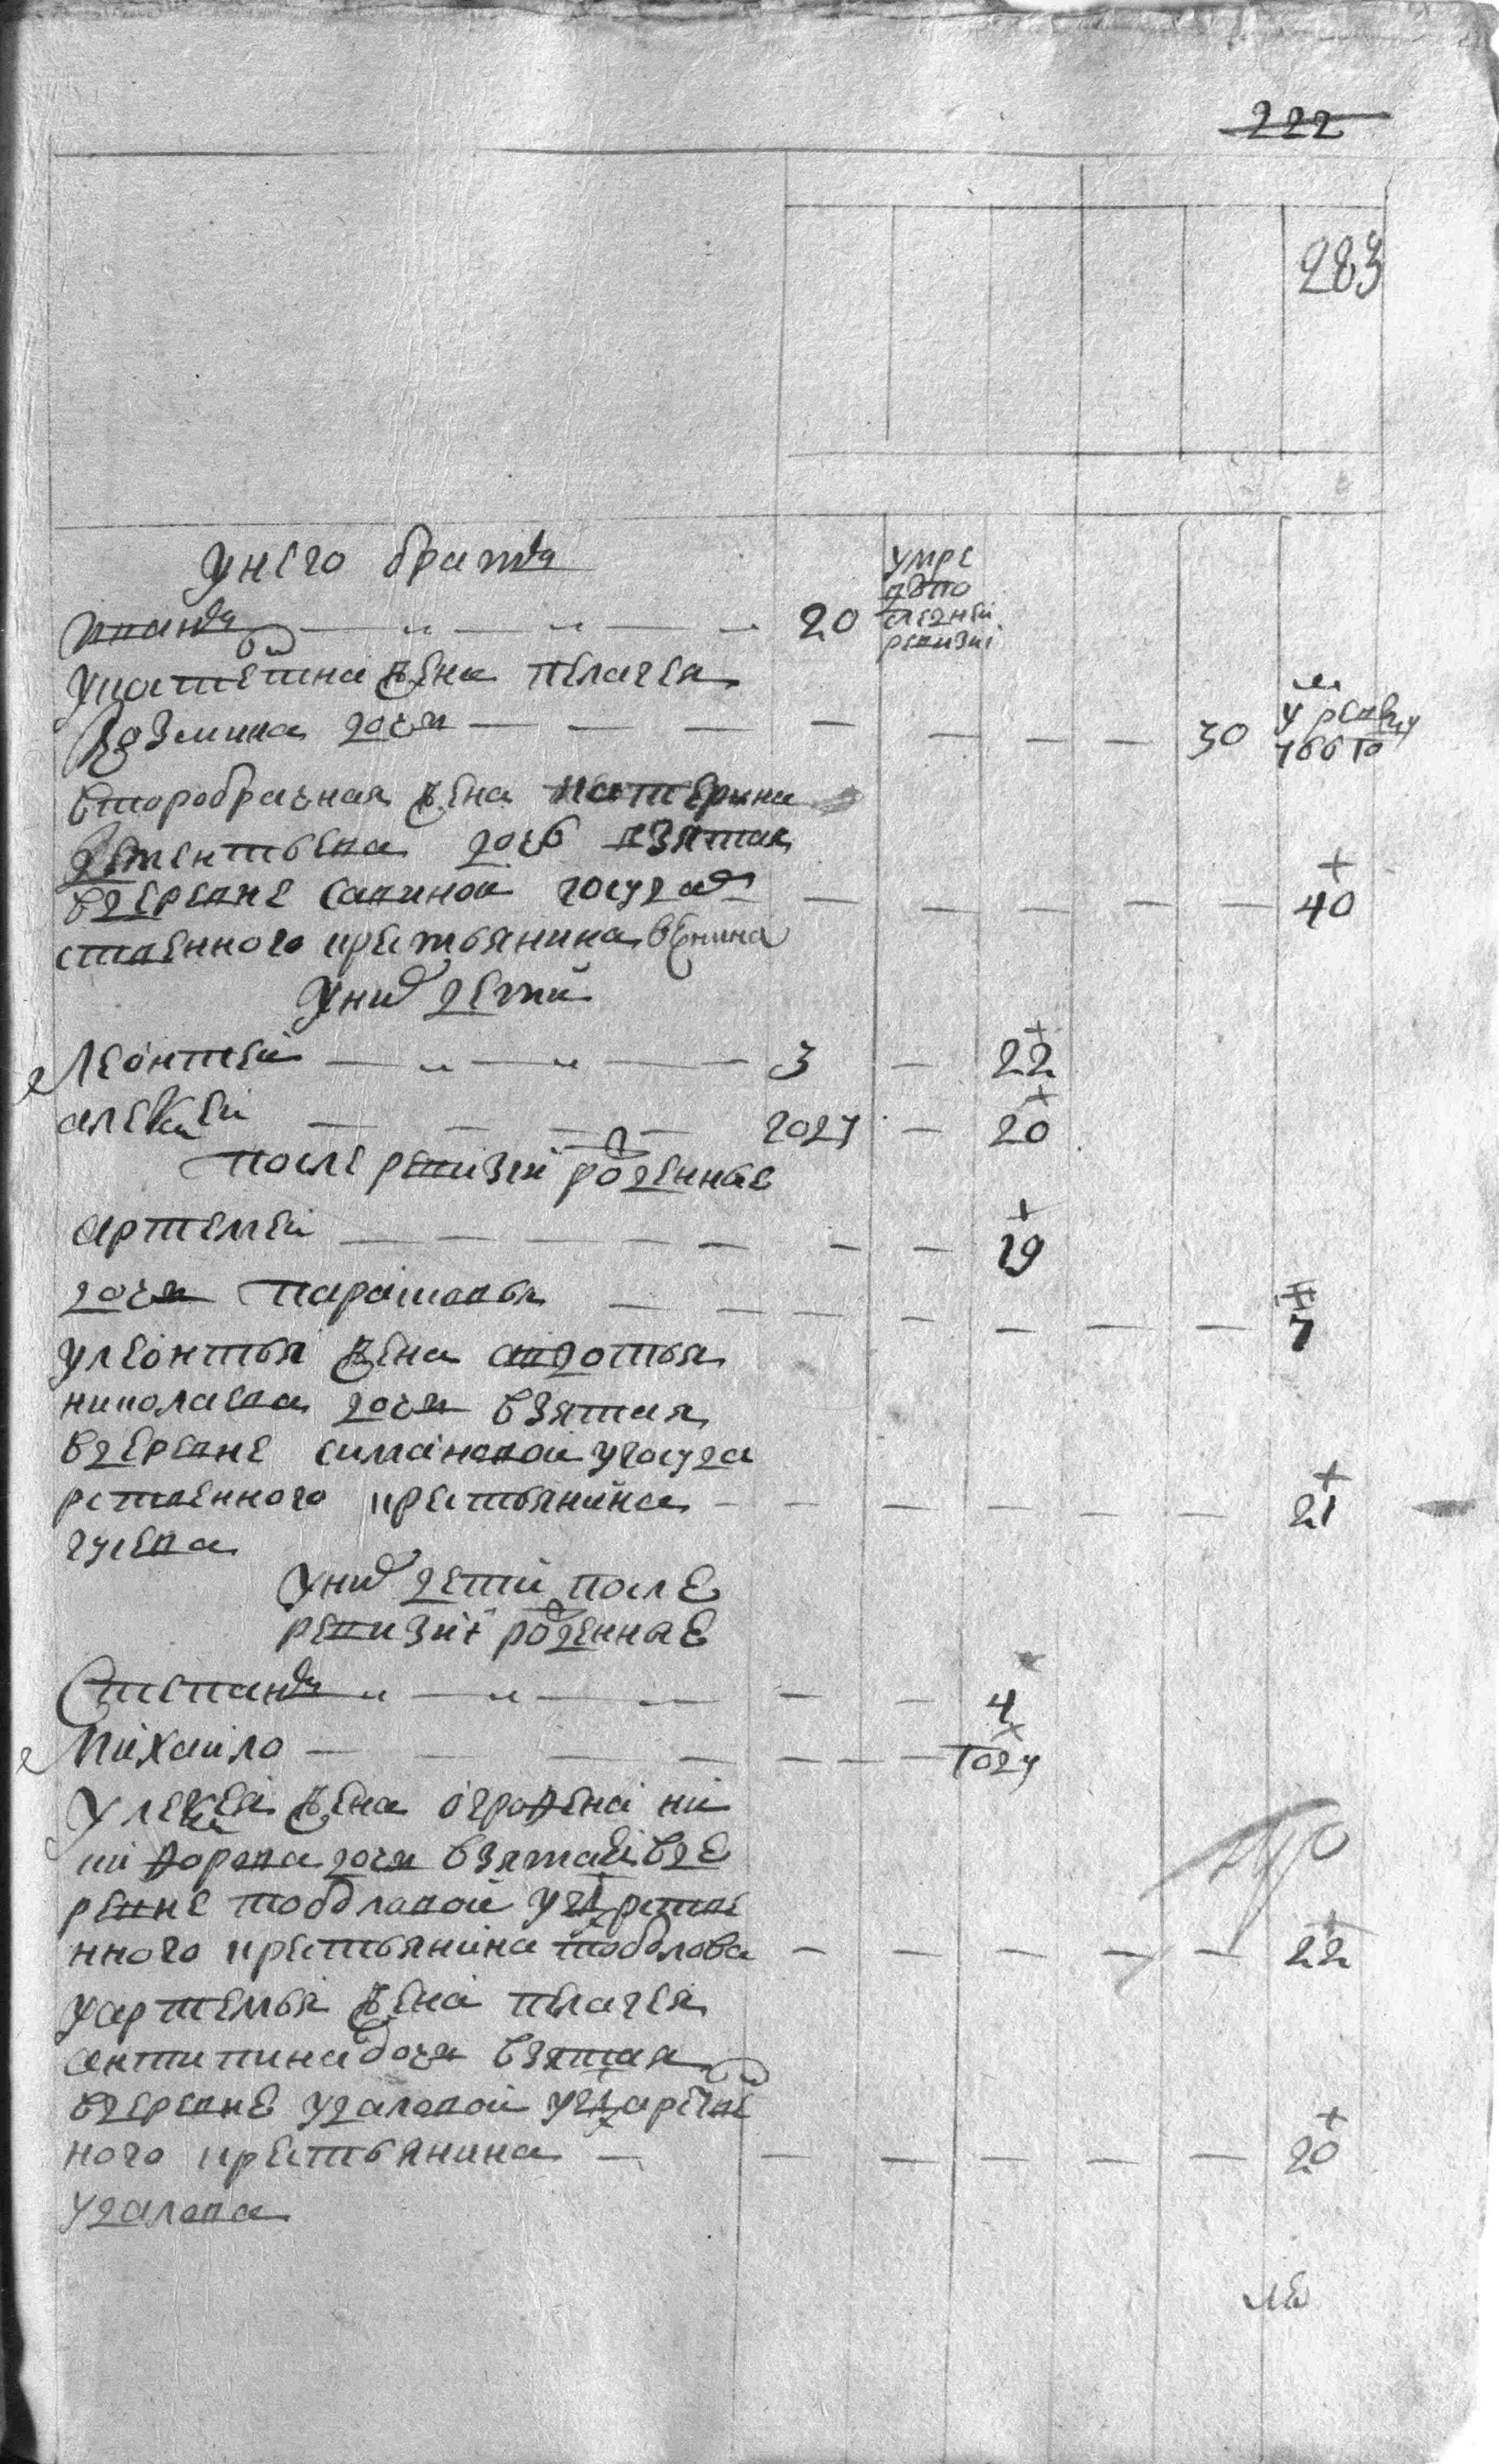 222
283
у него братъ
иванъ 20 умре
после
дней
ревизи
жена пелагея
козмина дочи 30 умре
1786 го
второбрачная жена катерина
дементьева дочь взятая
в деревне савиной государ 40
ственного крестьянина венина
у них детий
леонтей 3 22
алексей 2 ԝ 20
после ревизий рожденные
артемей 19
дочи парасковья 7
у леонтья жена авдотья
николаева дочи взятая
в деревне симановой у госуда
рственного крестьянина 21
гусева
у них детий после
ревизий рожденные
степанъ 4
михаило 1 году
у алексея жена аграфена ни
кифорова дочи взятая в де
ревне тоболовой у гдрстве
нного крестьянина тоболова 22
у артемья жена пелагея
антипина дочи взятая
в деревне удаловой у гдарстве
ного крестьянина 20
удалова